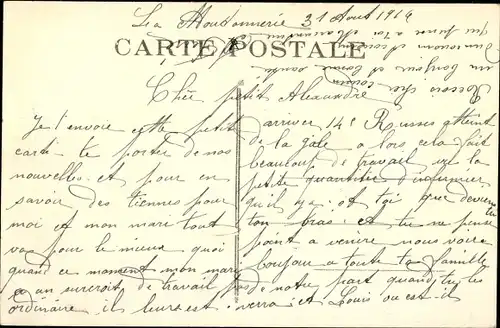 La Houdonnerie 31 Aout 1916
CARTE POSTALE
Chér petit Alexandre
Je t'envoie cette petite
carte te porter de nos
nouvelles. et pour en
savoir des tiennes pour
moi et mon mari tout
vas pour le mieux quoi
quand ce moment mon mari
a un surcroit de travail pas
ordinaire il leurs est
arriver 14 Russes atteint
de la gale alors cela fait
beaucoup de travail vu la
petite quantitée d'infirmier
qu'il y a. et toi que devien tu
ton bras. et tu ne pense
point a venire nous voire
bonjour a toute ta famille
de notre part quand tu les
verra et Louis ou est-il
Recoit cher cousin
un bonjour et bonne santé
d'un cousin et cousine
qui pense a toi